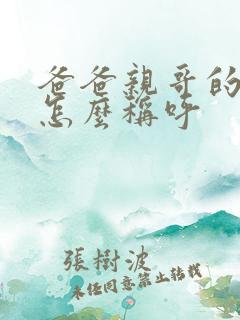 爸爸親哥的
怎麼稱呼
張樹波
未经同意禁止转载